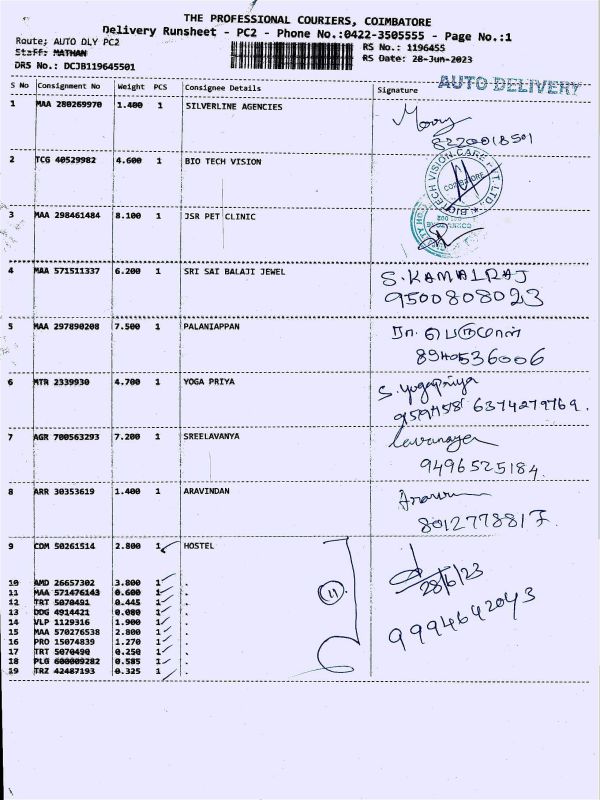 THE PROFESSIONAL COURIERS, COIMBATORE
Delivery Runsheet - PC2 - Phone No.:0422-3505555 - Page No.:1
Route; AUTO DLY PC2 RS No.: 1196455
Staff: MATHAN RS Date: 28-Jun-2023
DRS No.: DCJB119645501
AUTO DELIVERY
S No Consignment No Weight PCS Consignee Details Signature
1 MAA 280269970 1.400 1 SILVERLINE AGENCIES
8220018501
2 TCG 40529982 4.600 1 BIO TECH VISION
BIOTECH VISION CARE PVT. LTD. COIMBATORE
3 MAA 298461484 8.100 1 JSR PET CLINIC
4 MAA 571511337 6.200 1 SRI SAI BALAJI JEWEL S.KAMALRAJ
9500808023
5 MAA 297890208 7.500 1 PALANIAPPAN
8940536006
6 MTR 2339930 4.700 1 YOGA PRIYA S.yogapriya
6374279769.
7 AGR 700563293 7.200 1 SREELAVANYA
9496525184.
8 ARR 30353619 1.400 1 ARAVINDAN
8012778817.
9 CDM 50261514 2.800 1 HOSTEL
10 AMD 26657302 3.800 1 . 28/6/23
11 MAA 571476143 0.600 1 . 11
12 TRT 5070491 0.445 1 .
13 DDG 4914421 0.080 1 .
14 VLP 1129316 1.900 1 . 9994642043
15 MAA 570276538 2.800 1 .
16 PRO 15074839 1.270 1 .
17 TRT 5070490 0.250 1 .
18 PLG 600009282 0.585 1 .
19 TRZ 42487193 0.325 1 .